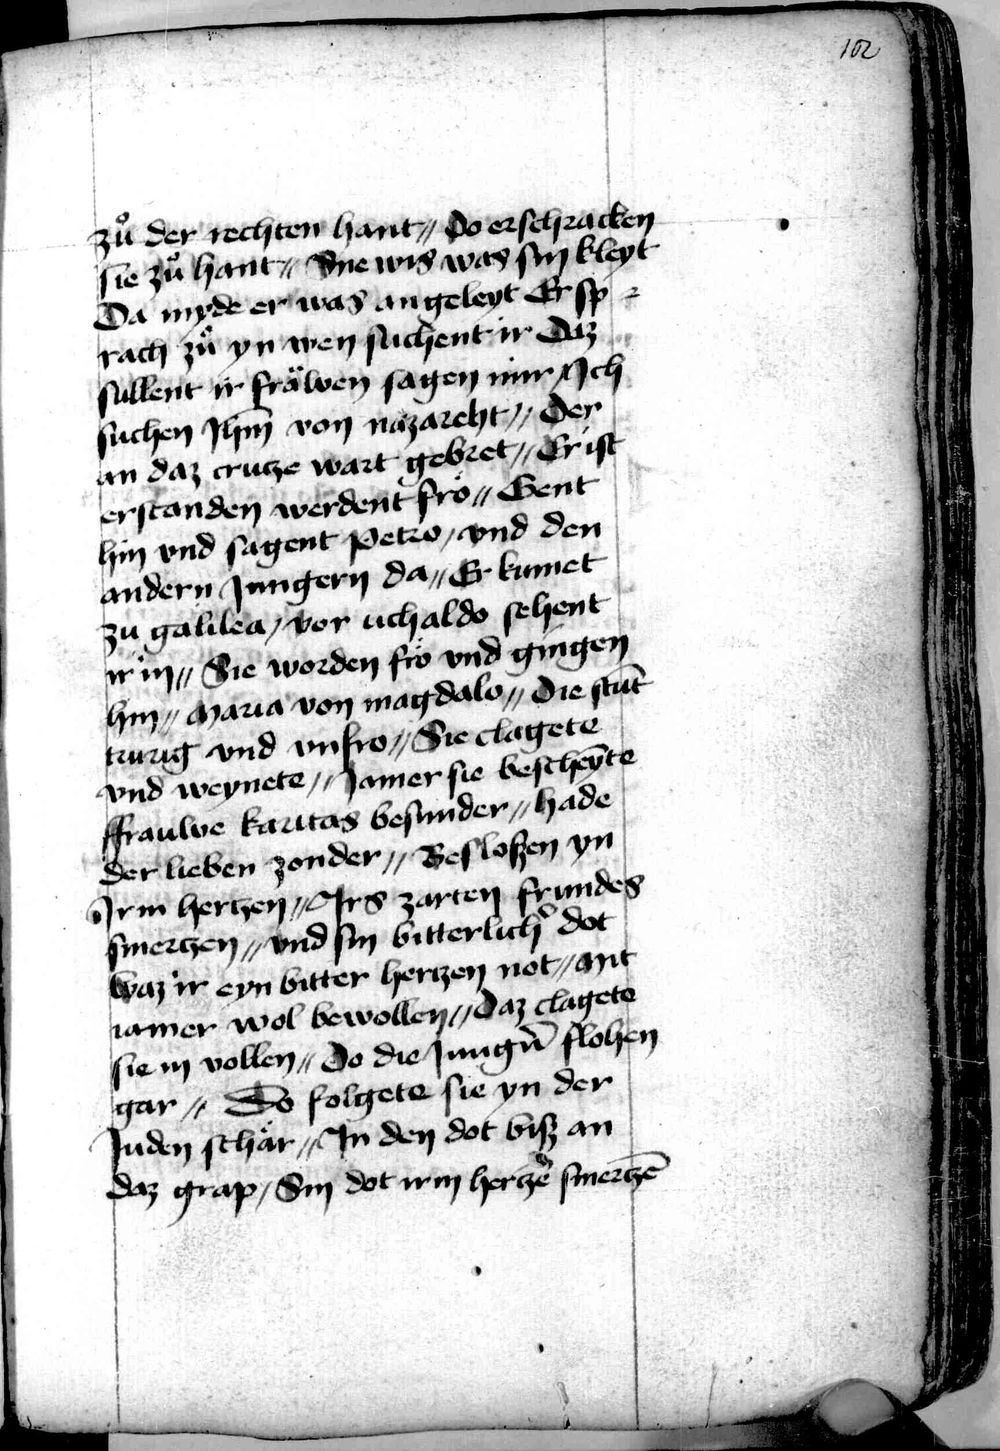 102
zů der rechten hant // Do erschracken
sie zů hant // Sne wis was sin kleyt
Da myde er was angeleyt Er sp
rach zů yn wen suchent ir Daz
sullent ir fräwen sagen mir / Ich
suchen Ihm̅ von nazareht // Der
an daz crutze wart gebret // Er ist
erstanden werdent fro // Gent
hin vnd sagent Petro / vnd den
andern Jungern da // Er kumet
zu galilea / vor uch aldo sehent
ir in // Sie worden fro vnd gingen
hin // Maria von magdalo // Die stūt
trurig vnd vnfro // Sie clagete
vnd weynete // Jamer sie bescheynte
ffrauwe karitas besunder // hade
der lieben zonder // Besloszen yn
Irm hertzen // Irs zarten frundes
smertzen // vnd sin bitterlich’ dot
waz ir eyn bitter hertzen not // Mit
iamer wol bewollen // Daz clagete
sie in vollen // Do die Jungn̅ flohen
gar // Do folgete sie yn der
Juden schar // In den dot bisz an
daz grap / Sin dot irm hertzē smertzē